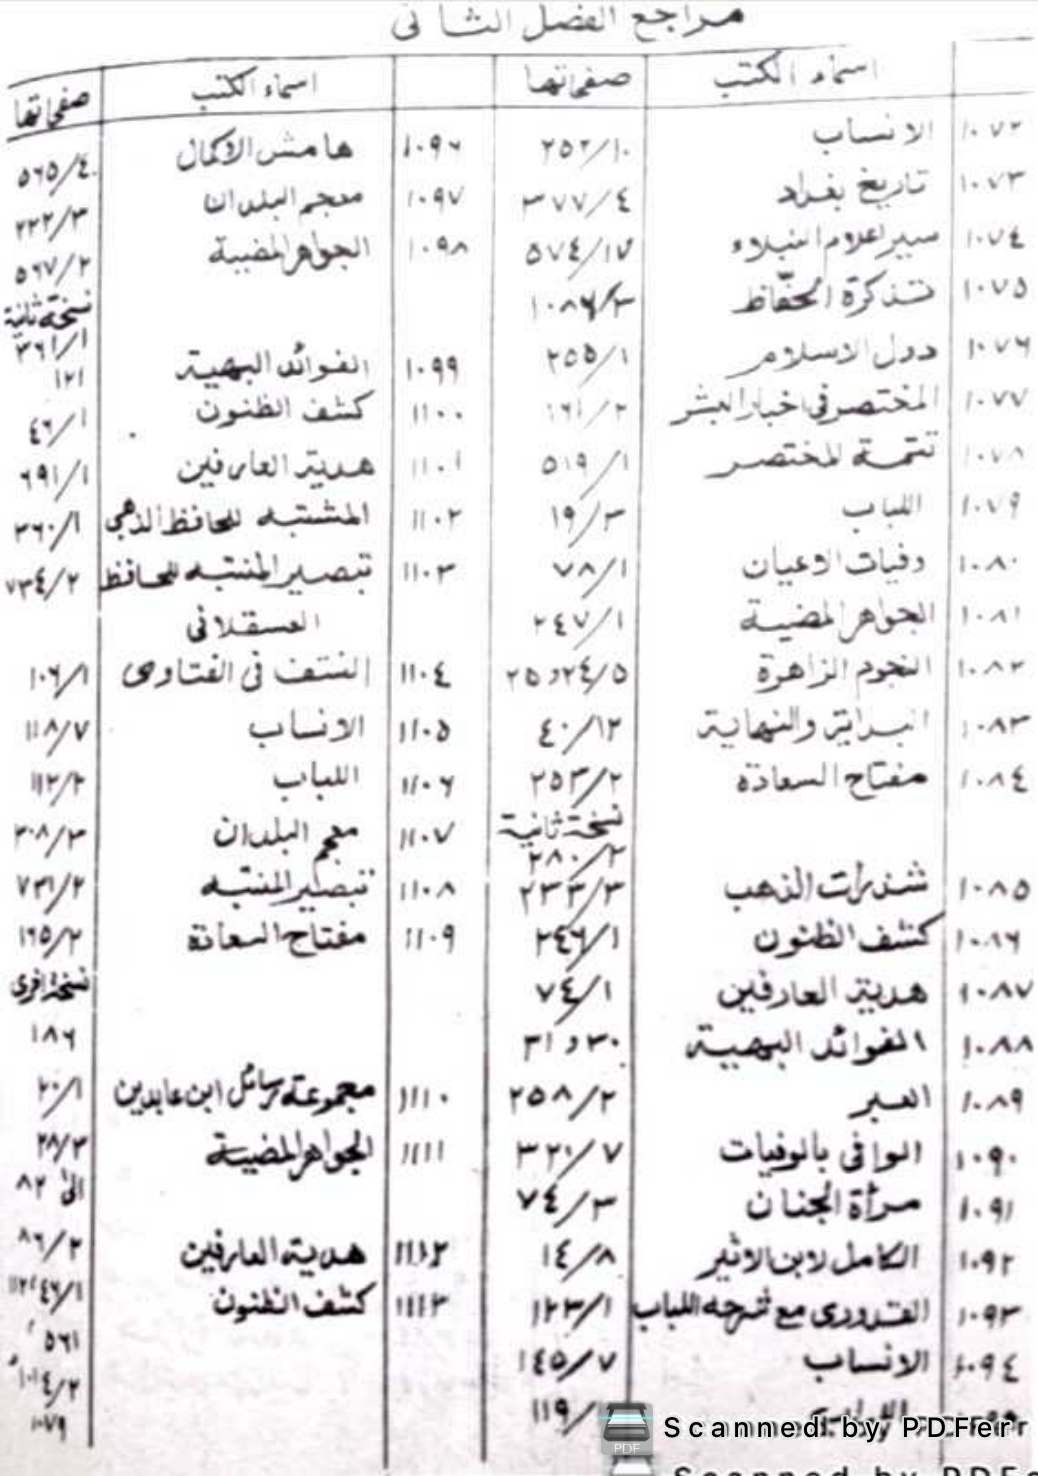 مراجع الفصل الثاني
اسماء الكتب صفحاتها
١٠٧٢ الانساب ٢٥٢/١٠
١٠٧٣ تاريخ بغداد ٣٧٧/٤
١٠٧٤ سير اعلام النبلاء ٥٧٤/١٧
١٠٧٥ تذكرة الحفّاظ ١٠٨٦/٣
١٠٧٦ دول الاسلام ٢٥٥/١
١٠٧٧ المختصر في اخبار البشر ١٦١/٢
١٠٧٨ تتمة المختصر ٥١٩/١
١٠٧٩ اللباب ١٩/٣
١٠٨٠ وفيات الاعيان ٧٨/١
١٠٨١ الجواهر المضية ٢٤٧/١
١٠٨٢ النجوم الزاهرة ٢٤/٥ و٢٥
١٠٨٣ البداية والنهاية ٤٠/١٢
١٠٨٤ مفتاح السعادة ٢٥٣/٢
نسخة ثانية
٢٨٠/٢
١٠٨٥ شذرات الذهب ٢٣٣/٣
١٠٨٦ كشف الظنون ٢٤٦/١
١٠٨٧ هدية العارفين ٧٤/١
١٠٨٨ الفوائد البهية ٣٠ و ٣١
١٠٨٩ العبر ٢٥٨/٢
١٠٩٠ الوافي بالوفيات ٣٢٠/٧
١٠٩١ مرأة الجنان ٧٤/٣
١٠٩٢ الكامل لابن الاثير ١٤/٨
١٠٩٣ القدوري مع شرحه اللباب ١٢٣/١
١٠٩٤ الانساب ١٤٥/٧
١١٩/
اسماء الكتب صفحاتها
١٠٩٦ هامش الاكمال ٥٦٥/٤
١٠٩٧ معجم البلدان ٢٢٢/٣
١٠٩٨ الجواهر المضية ٥٦٧/٢
نسخة ثانية
٣٦١/١
١٠٩٩ الفوائد البهية ١٢١
١١٠٠ كشف الظنون ٤٦/١
١١٠١ هدية العارفين ٦٩١/١
١١٠٢ المشتبه للحافظ الذهبي ٣٦٠/١
١١٠٣ تبصير المنتبه للحافظ ٧٣٤/٢
العسقلاني
١١٠٤ النتف في الفتاوى ١٠٦/١
١١٠٥ الانساب ١١٨/٧
١١٠٦ اللباب ١١٢/٢
١١٠٧ معجم البلدان ٢٠٨/٣
١١٠٨ تبصير المنتبه ٧٣١/٢
١١٠٩ مفتاح السعادة ١٦٥/٢
نسخة اخرى
١٨٦
١١١٠ مجموعة رسائل ابن عابدين ٢٠/١
١١١١ الجواهر المضية ٢٨/٣
الى ٨٢
١١١٢ هدية العارفين ٨٦/٢
١١١٣ كشف الظنون ٤٦/١، ١١٢
٥٦١
١٠١٤/٢
١٠٧٩
Scanned by PDFer
PDF